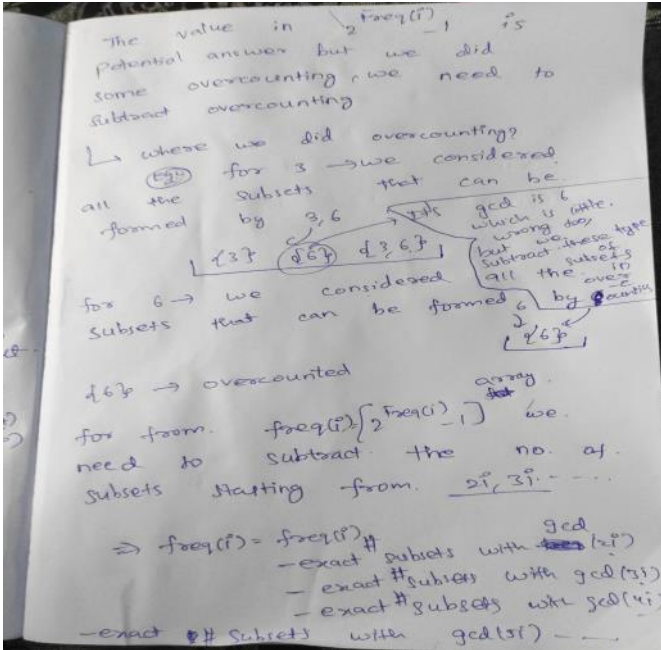 The value in 2^freq(i) - 1 is
potential answer but we did
some overcounting, we need to
subtract overcounting
↳ where we did overcounting?
for 3 → we considered
all the subsets that can be
formed by 3,6
{3} {6} {3,6}
It's gcd is 6
which is little
wrong too,
but we
subtract these type
of
all the subsets
in
over
counting
for 6 → we considered
subsets that can be formed by
6
{6}
{6} → overcounted
for from freq(i) [2^freq(i) - 1] array we
need to subtract the no. of
subsets starting from 2i, 3i - - - - -
⇒ freq(i) = freq(i)
- exact # subsets with gcd (2i)
- exact # subsets with gcd (3i)
- exact # subsets with gcd (4i)
- exact # subsets with gcd (5i) - - -